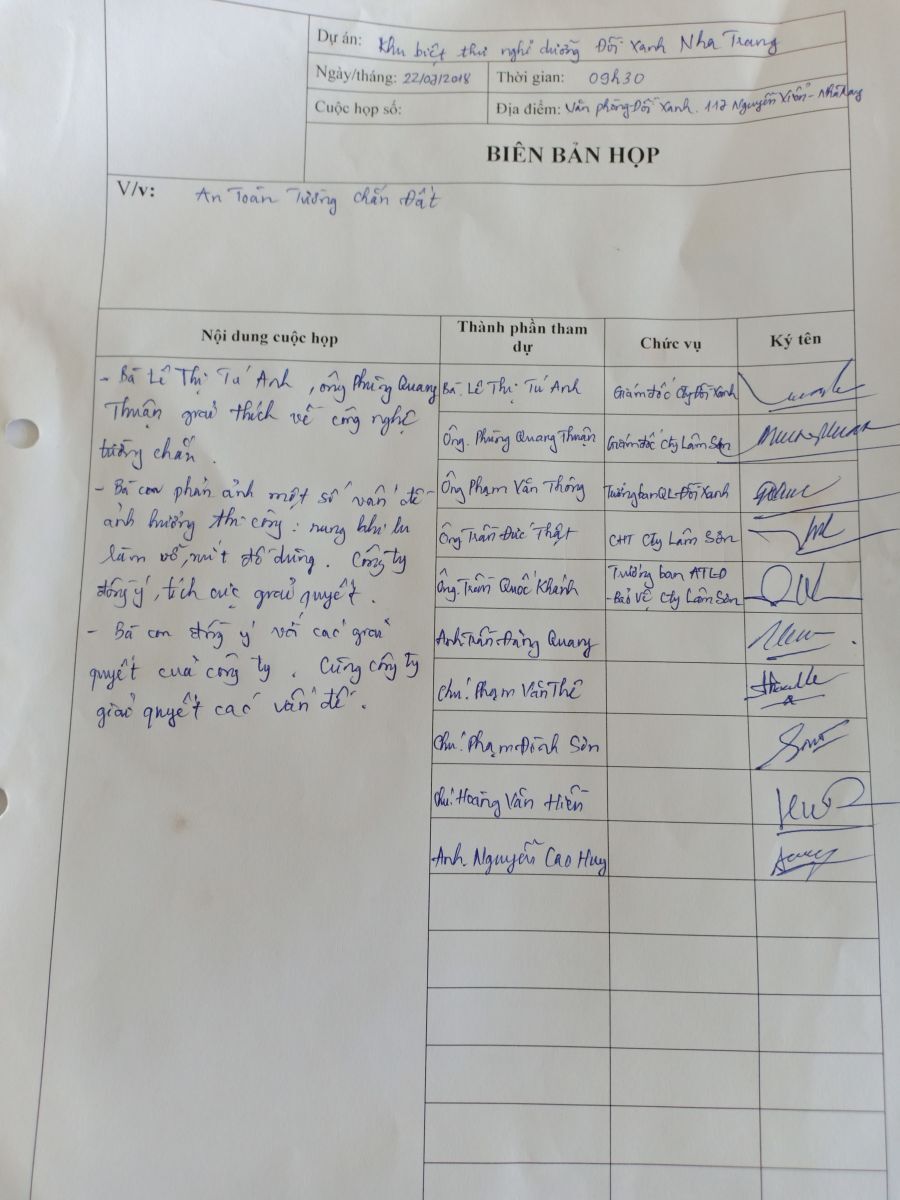 Dự án: Khu biệt thự nghỉ dưỡng Đồi Xanh Nha Trang
Ngày/tháng: 22/03/2018 Thời gian: 09h30
Cuộc họp số: Địa điểm: Văn phòng Đồi Xanh. 117 Nguyễn Xiển - Nha Trang
BIÊN BẢN HỌP
V/v: An Toàn Tường chắn Đất
Nội dung cuộc họp Thành phần tham dự Chức vụ Ký tên
- Bà Lê Thị Tú Anh, ông Phùng Quang
Thuận giải thích về công nghệ
tường chắn.
- Bà con phản ảnh một số vấn đề
ảnh hưởng thi công: rung khi lu
làm vỡ, nứt đồ dùng. Công ty
đồng ý, tích cực giải quyết.
- Bà con đồng ý với các giải
quyết của công ty. Cùng công ty
giải quyết các vấn đề.
Bà Lê Thị Tú Anh Giám đốc Cty Đồi Xanh
Ông. Phùng Quang Thuận Giám đốc Cty Lâm Sơn
Ông Phạm Văn Thông Trưởng ban QL-Đồi Xanh
Ông Trần Đức Thật CHT Cty Lâm Sơn
Ông. Trần Quốc Khánh Trưởng ban ATLĐ
-Bảo Vệ Cty Lâm Sơn
Anh Trần Đăng Quang
Chú. Phạm Văn Thê
Chú. Phạm Đình Sơn
Chú. Hoàng Văn Hiền
Anh Nguyễn Cao Huy